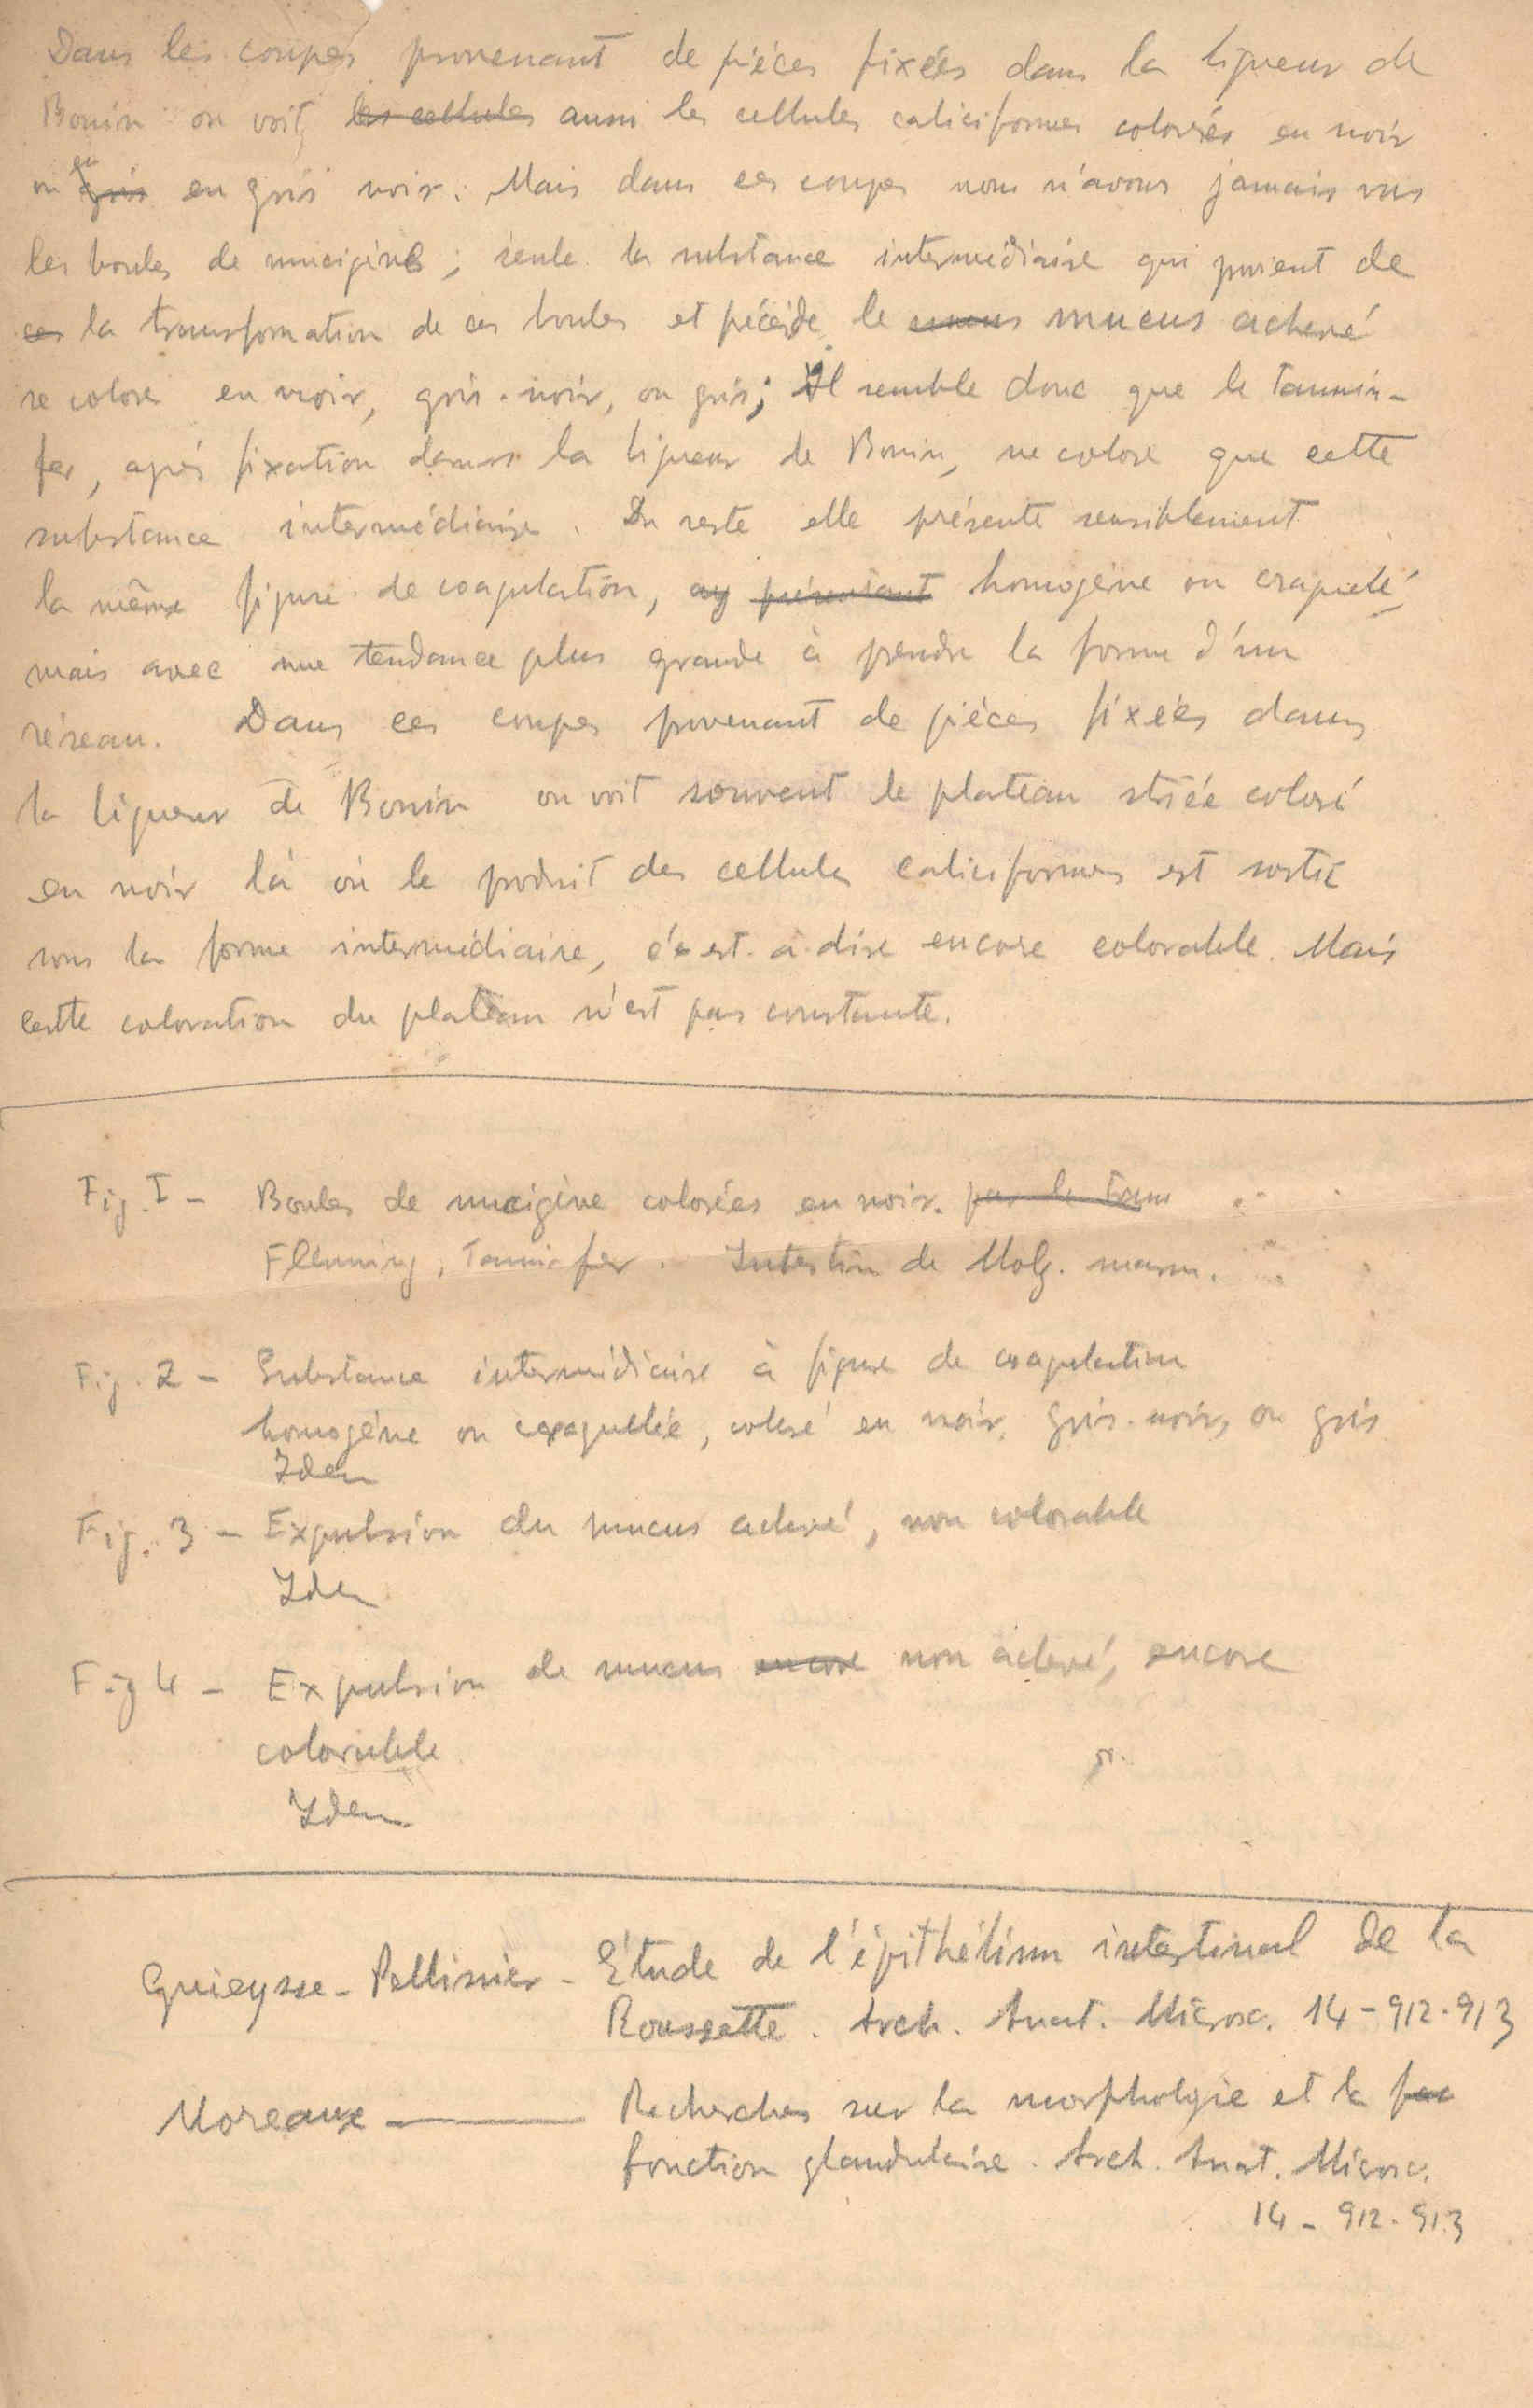 Dans les coupes provenant de pièces fixées dans la liqueur de
Bouin on voit les cellules aussi les cellules caliciformes colorées en noir
ou en gris en gris noir. Mais dans ces coupes nous n'avons jamais vus
les boules de mucigène; seule la substance intermédiaire qui provient de
ces la transformation de ces boules et précède le mucus achevé
se colore en noir, gris-noir, ou gris; Il semble donc que le tannin-
fer, après fixation dans la liqueur de Bouin, ne colore que cette
substance intermédiaire. Du reste elle présente sensiblement
la même figure de coagulation, présentant homogène ou craquelé,
mais avec une tendance plus grande à prendre la forme d'un
réseau. Dans ces coupes provenant de pièces fixées dans
la liqueur de Bouin on voit souvent le plateau striée coloré
en noir là où le produit des cellules caliciformes est sortie
sous la forme intermédiaire, c'est-a-dire encore colorable. Mais
cette coloration du plateau n'est pas constante.
Fig. I - Boules de mucigène colorées en noir. par le tann
Flemming, Tannin fer. Intestin de Molg. marm.
Fig. 2 - Substance intermédiaire à figure de coagulation
homogène ou craquelée, coloré en noir, gris-noir, ou gris
Idem
Fig. 3 - Expulsion du mucus achevé, non colorable
Idem
Fig 4 - Expulsion de mucus encore non achevé, encore
colorable
Idem
Guieysse-Pellissier - Étude de l'épithélium intestinal de la
Roussette. Arch. Anat. Microsc. 14-912-913
Moreaux - Recherches sur la morphologie et la
fonction glandulaire. Arch. Anat. Microsc.
14-912-913